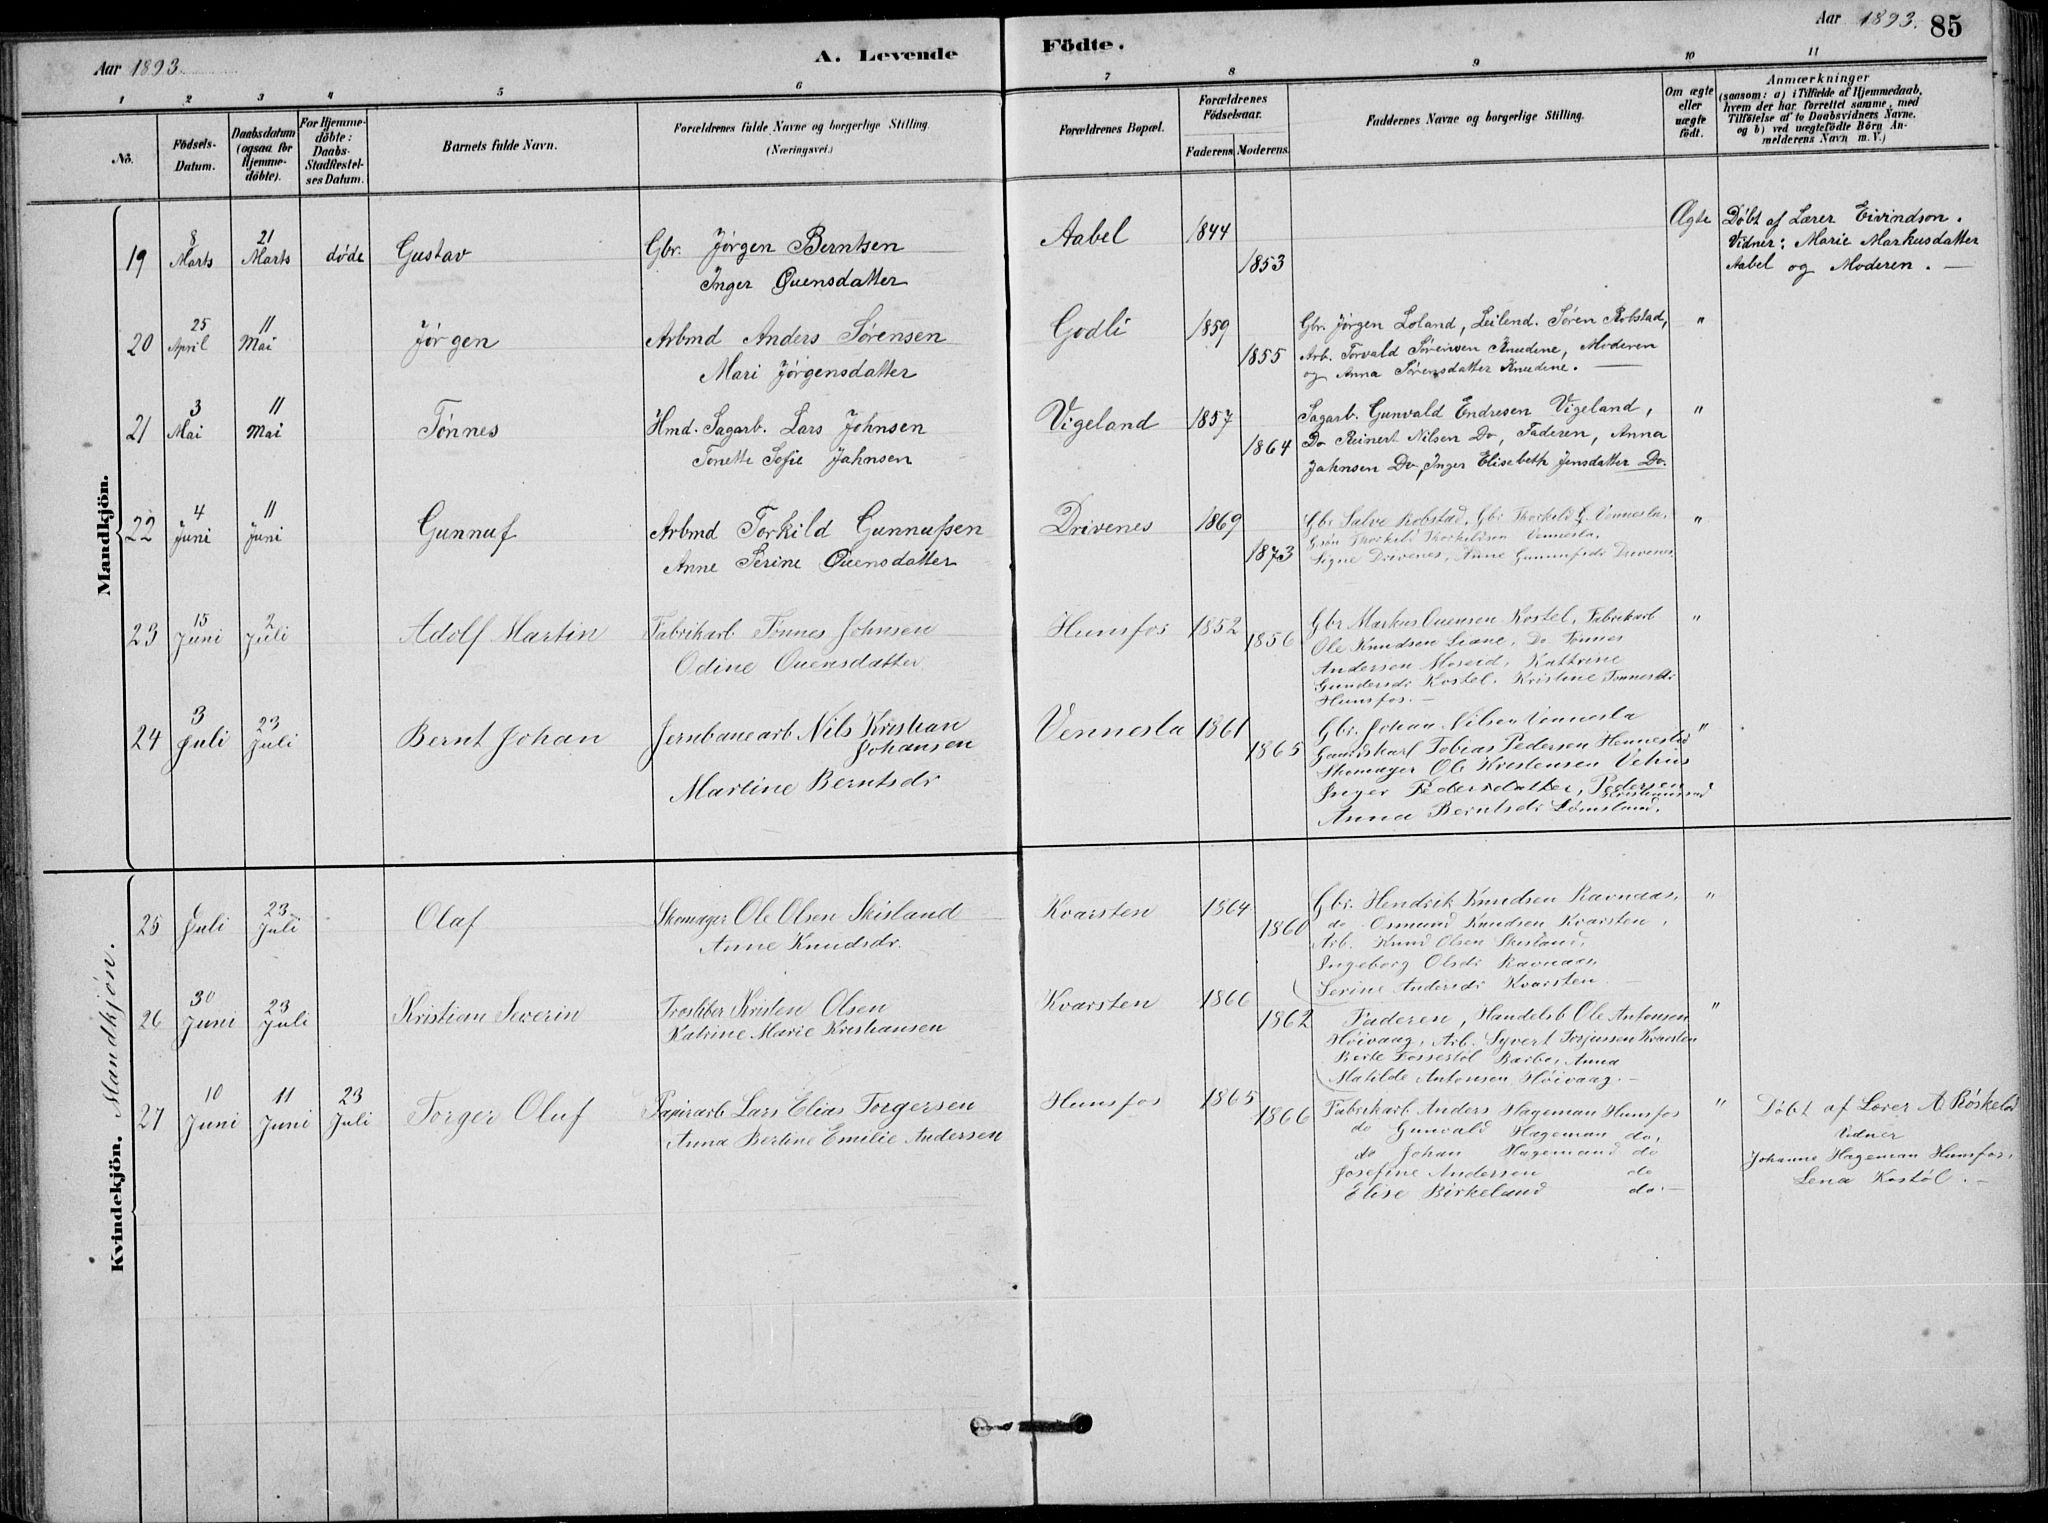 Aar 1893.
A. Levende
Födte.
Aar 1893.
85
1
2
3
4
5
6
7
8
9
10
11
No.
Födsels-
Datum.
Daabsdatum
(ogsaa for
Hjemme-
döbte).
For Hjemme-
döbte:
Daabs-
Stadfæstel-
ses Datum.
Barnets fulde Navn.
Forældrenes fulde Navne og borgerlige Stilling.
(Næringsvei.)
Forældrenes Bopæl.
Forældrenes
Födselsaar.
Faderens.
Moderens.
Faddernes Navne og borgerlige Stilling.
Om ægte
eller
uægte
födt.
Anmærkninger
(saasom: a) i Tilfælde af Hjemmedaab,
hvem der har forrettet samme, med
Tilföielse af to Daabsvidners Navne,
og b) ved uægtefödte Börn An-
melderens Navn m. V.)
Mandkjön.
19
8
Marts
21
Marts
døde
Gustav
Gbr. Jørgen Berntsen
Inger Ouensdatter
Aabel
1844
1853
Ægte
Døbt af Lærer Eivindson.
Vidner: Marie Markusdatter
Aabel og Moderen. —
20
25
April
11
Mai
Jørgen
Arbmd Anders Sørensen
Mari Jørgensdatter
Godli
1859
1855
Gbr. Jørgen Loland, Leilend. Søren Robstad,
Arb. Torvald Sørensen Knudene, Moderen
og Anna Sørensdatter Knudene. —
"
21
3
Mai
11
Mai
Tønnes
Hmd. Sagarb. Lars Johnsen
Tonette Sofie Jahnsen
Vigeland
1857
1864
Sagarb. Gunvald Endresen Vigeland,
Do Reinert Nilsen Do, Faderen, Anna
Jahnsen Do, Inger Elisebeth Jensdatter Do.
"
22
4
Juni
11
Juni
Gunnuf
Arbmd Torkild Gunnufsen
Anne Serine Ouensdatter
Drivenes
1869
1873
Gbr Salve Robstad, Gbr Thorkild G. Vennesla,
Gsøn Thorkild Thorkildsen Vennesla,
Signe Drivenes, Anne Gunnufsdr Drivenes
"
23
15
Juni
2
Juli
Adolf Martin
Fabrikarb Tønnes Johnsen
Odine Ouensdatter
Hunsfos
1852
1856
Gbr Markus Ouensen Kostøl, Fabrikarb
Ole Knudsen Liane, Do Tønnes
Andersen Moseid, Kathrine
Gundersdr Kostøl, Kristine Tønnesdr
Hunsfos. —
"
24
3
Juli
23
Juli
Bernt Johan
Jernbanearb Nils Kristian
Johansen
Martine Berntsdr
Vennesla
1861
1865
Gbr. Johan Nilsen Vennesla
Gaardskarl Tobias Pedersen Hennestad
Skomager Ole Kristensen Vehus
Inger Pedersdatter, Pedersen
Kristianssand
Anna Berntsdr Lømsland.
"
Kvindekjön. Mandkjön.
25
6
Juli
23
Juli
Olaf
Skomager Ole Olsen Skisland
Anne Knudsdr.
Kvarsten
1864
1860
Gbr. Hendrik Knudsen Ravnaas,
do Osmund Knudsen Kvarsten,
Arb. Knud Olsen Skisland,
Ingeborg Olsdr Ravnaas,
Serine Andersdr Kvarsten. —
"
26
30
Juni
23
Juli
Kristian Severin
Træsliber Kristen Olsen
Katrine Marie Kristiansen
Kvarsten
1866
1862
Faderen, Handelsb Ole Antonsen
Høivaag, Arb. Syvert Torjussen Kvarsten
Berte Fossestøl Barbo, Anna
Matilde Antonsen Høivaag. —
"
27
10
Juni
11
Juni
23
Juli
Torger Oluf
Papirarb Lars Elias Torgersen
Anna Bertine Emilie Andersen
Hunsfos
1865
1866
Fabrikarb Anders Hageman Hunsfos
do Gunvald Hageman do,
do Johan Hagemand do
Josefine Andersen do
Elise Birkeland do. —
"
Døbt af Lærer A. Røskeld
Vidner
Johanne Hageman Hunsfos,
Lena Kostøl. —